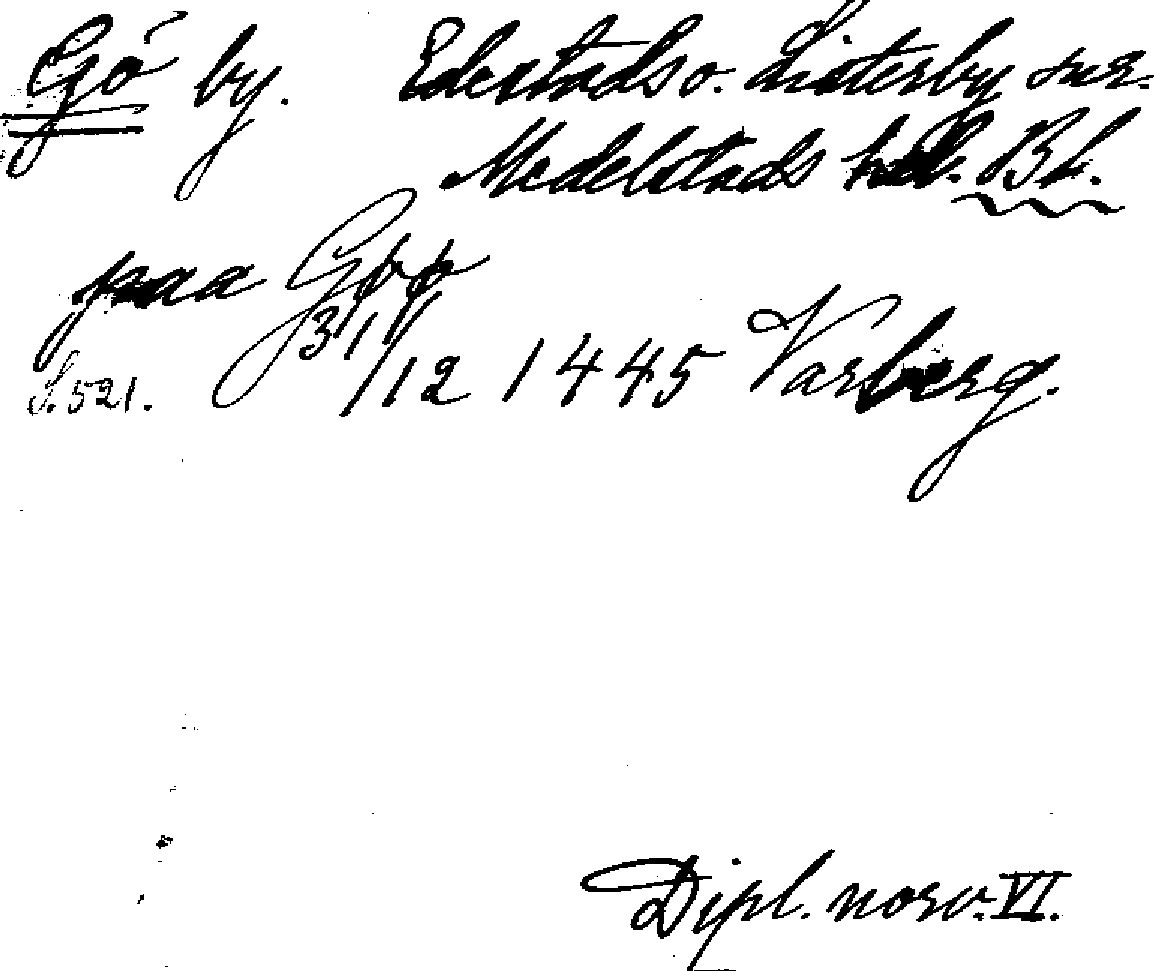 Gö by. Edestads o. Listerby snr.
Medelstads hd. Bl.
paa Gøø
31/12 1445 Varberg.
S. 521.
Dipl. norv. VI.